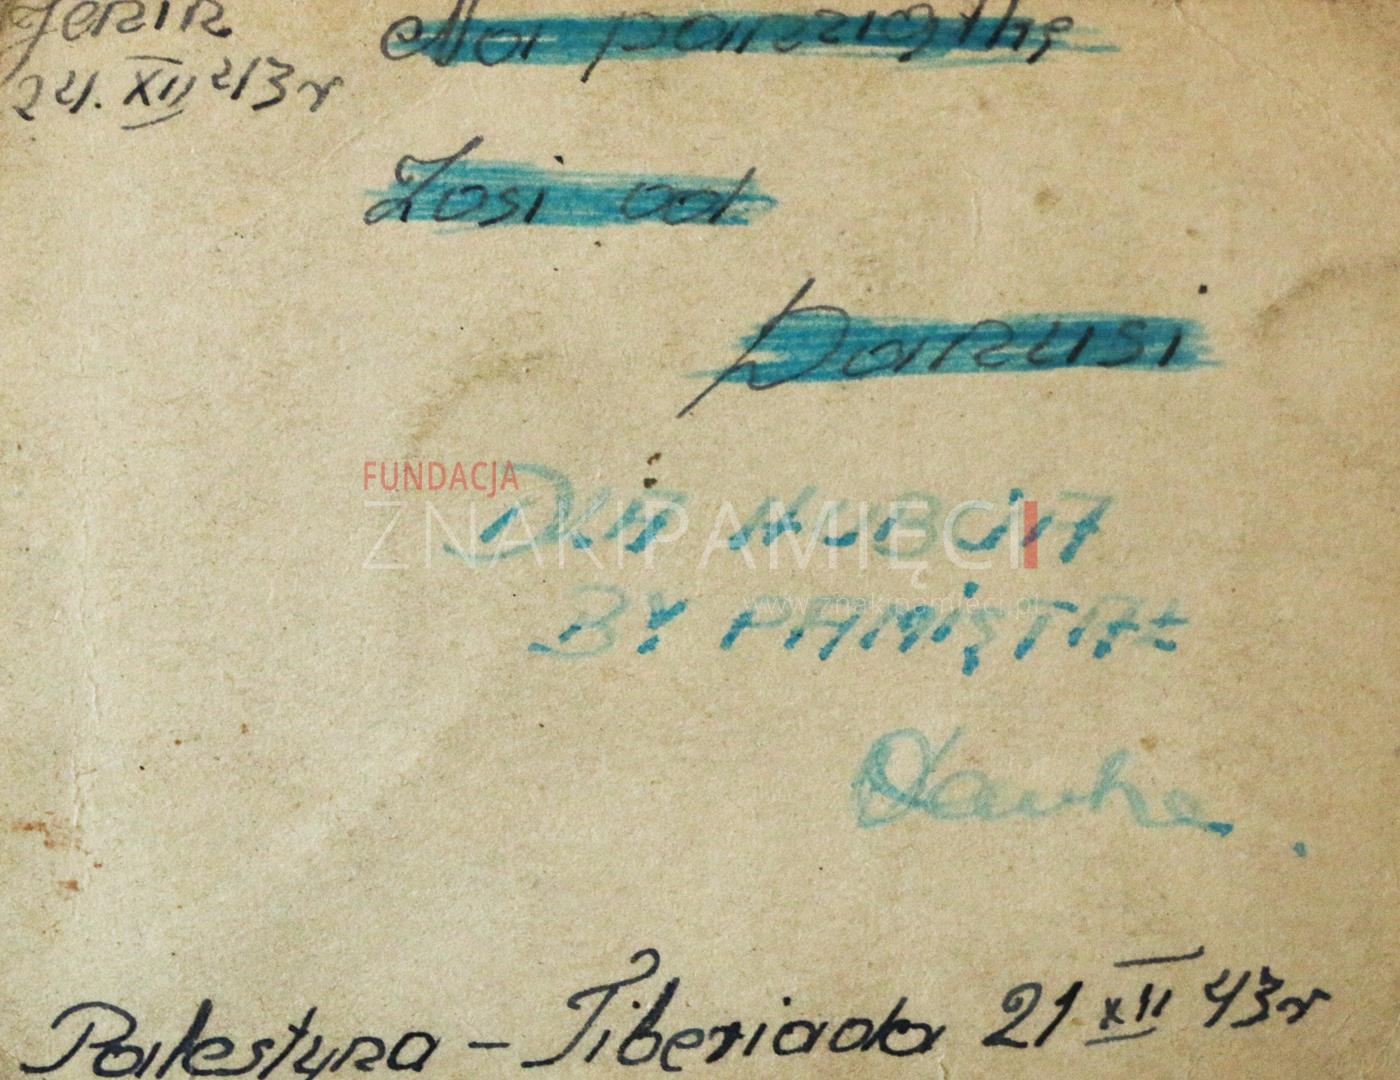 Jenin
24. XII 43r
Na pamiątkę
Zosi od
Danusi
FUNDACJA
ZNAKI PAMIĘCI
www.znakipamieci.pl
DLA KUBUIA
BY PAMIĘTAŁ
Palestyna - Tiberiada 21 XII 43r